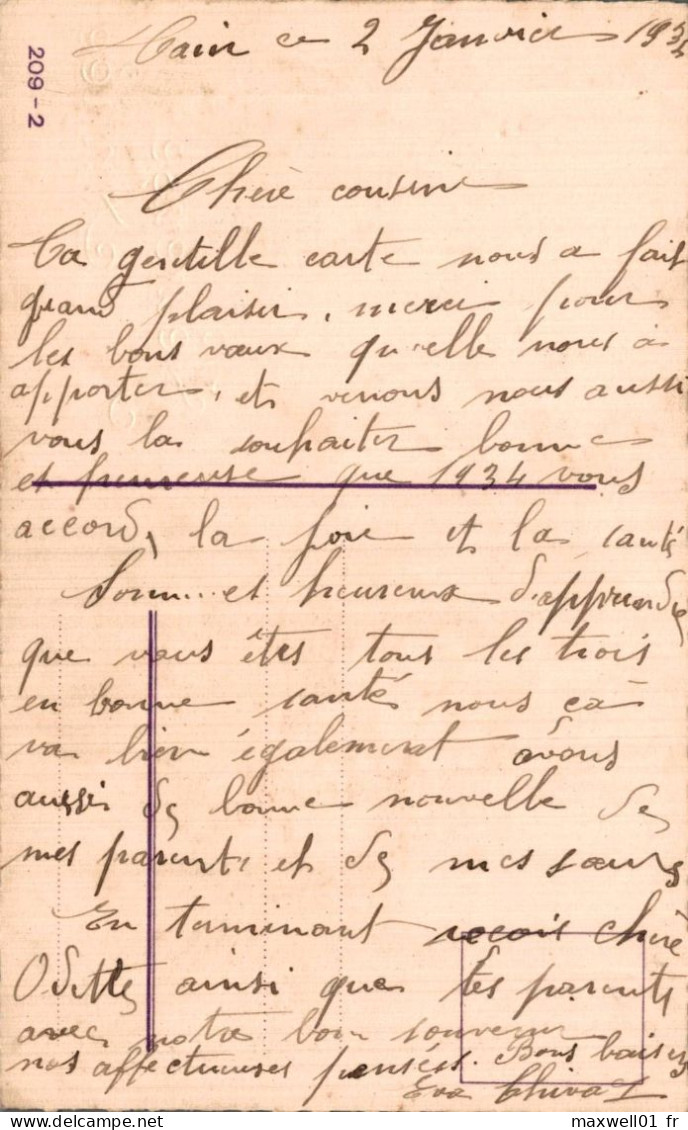 ce 2 Janvier 1934
209-2
Chère cousine
Ta gentille carte nous a fait
grand plaisir, merci pour
les bons vœux qu'elle nous a
apporter, et venons nous aussi
vous la souhaiter bonne
et heureuse que 1934 vous
accorde la joie et la santé
Sommes et heureux d'apprendre
que vous êtes tous les trois
en bonne santé nous ça
va bien également avons
aussi de bonne nouvelle de
mes parents et de mes sœurs
En terminant reçois chère
Odette ainsi que tes parents
avec notre bon souvenir
nos affectueuses pensées. Bons baisers
Eva
maxwell01 fr | maxwell01.fr